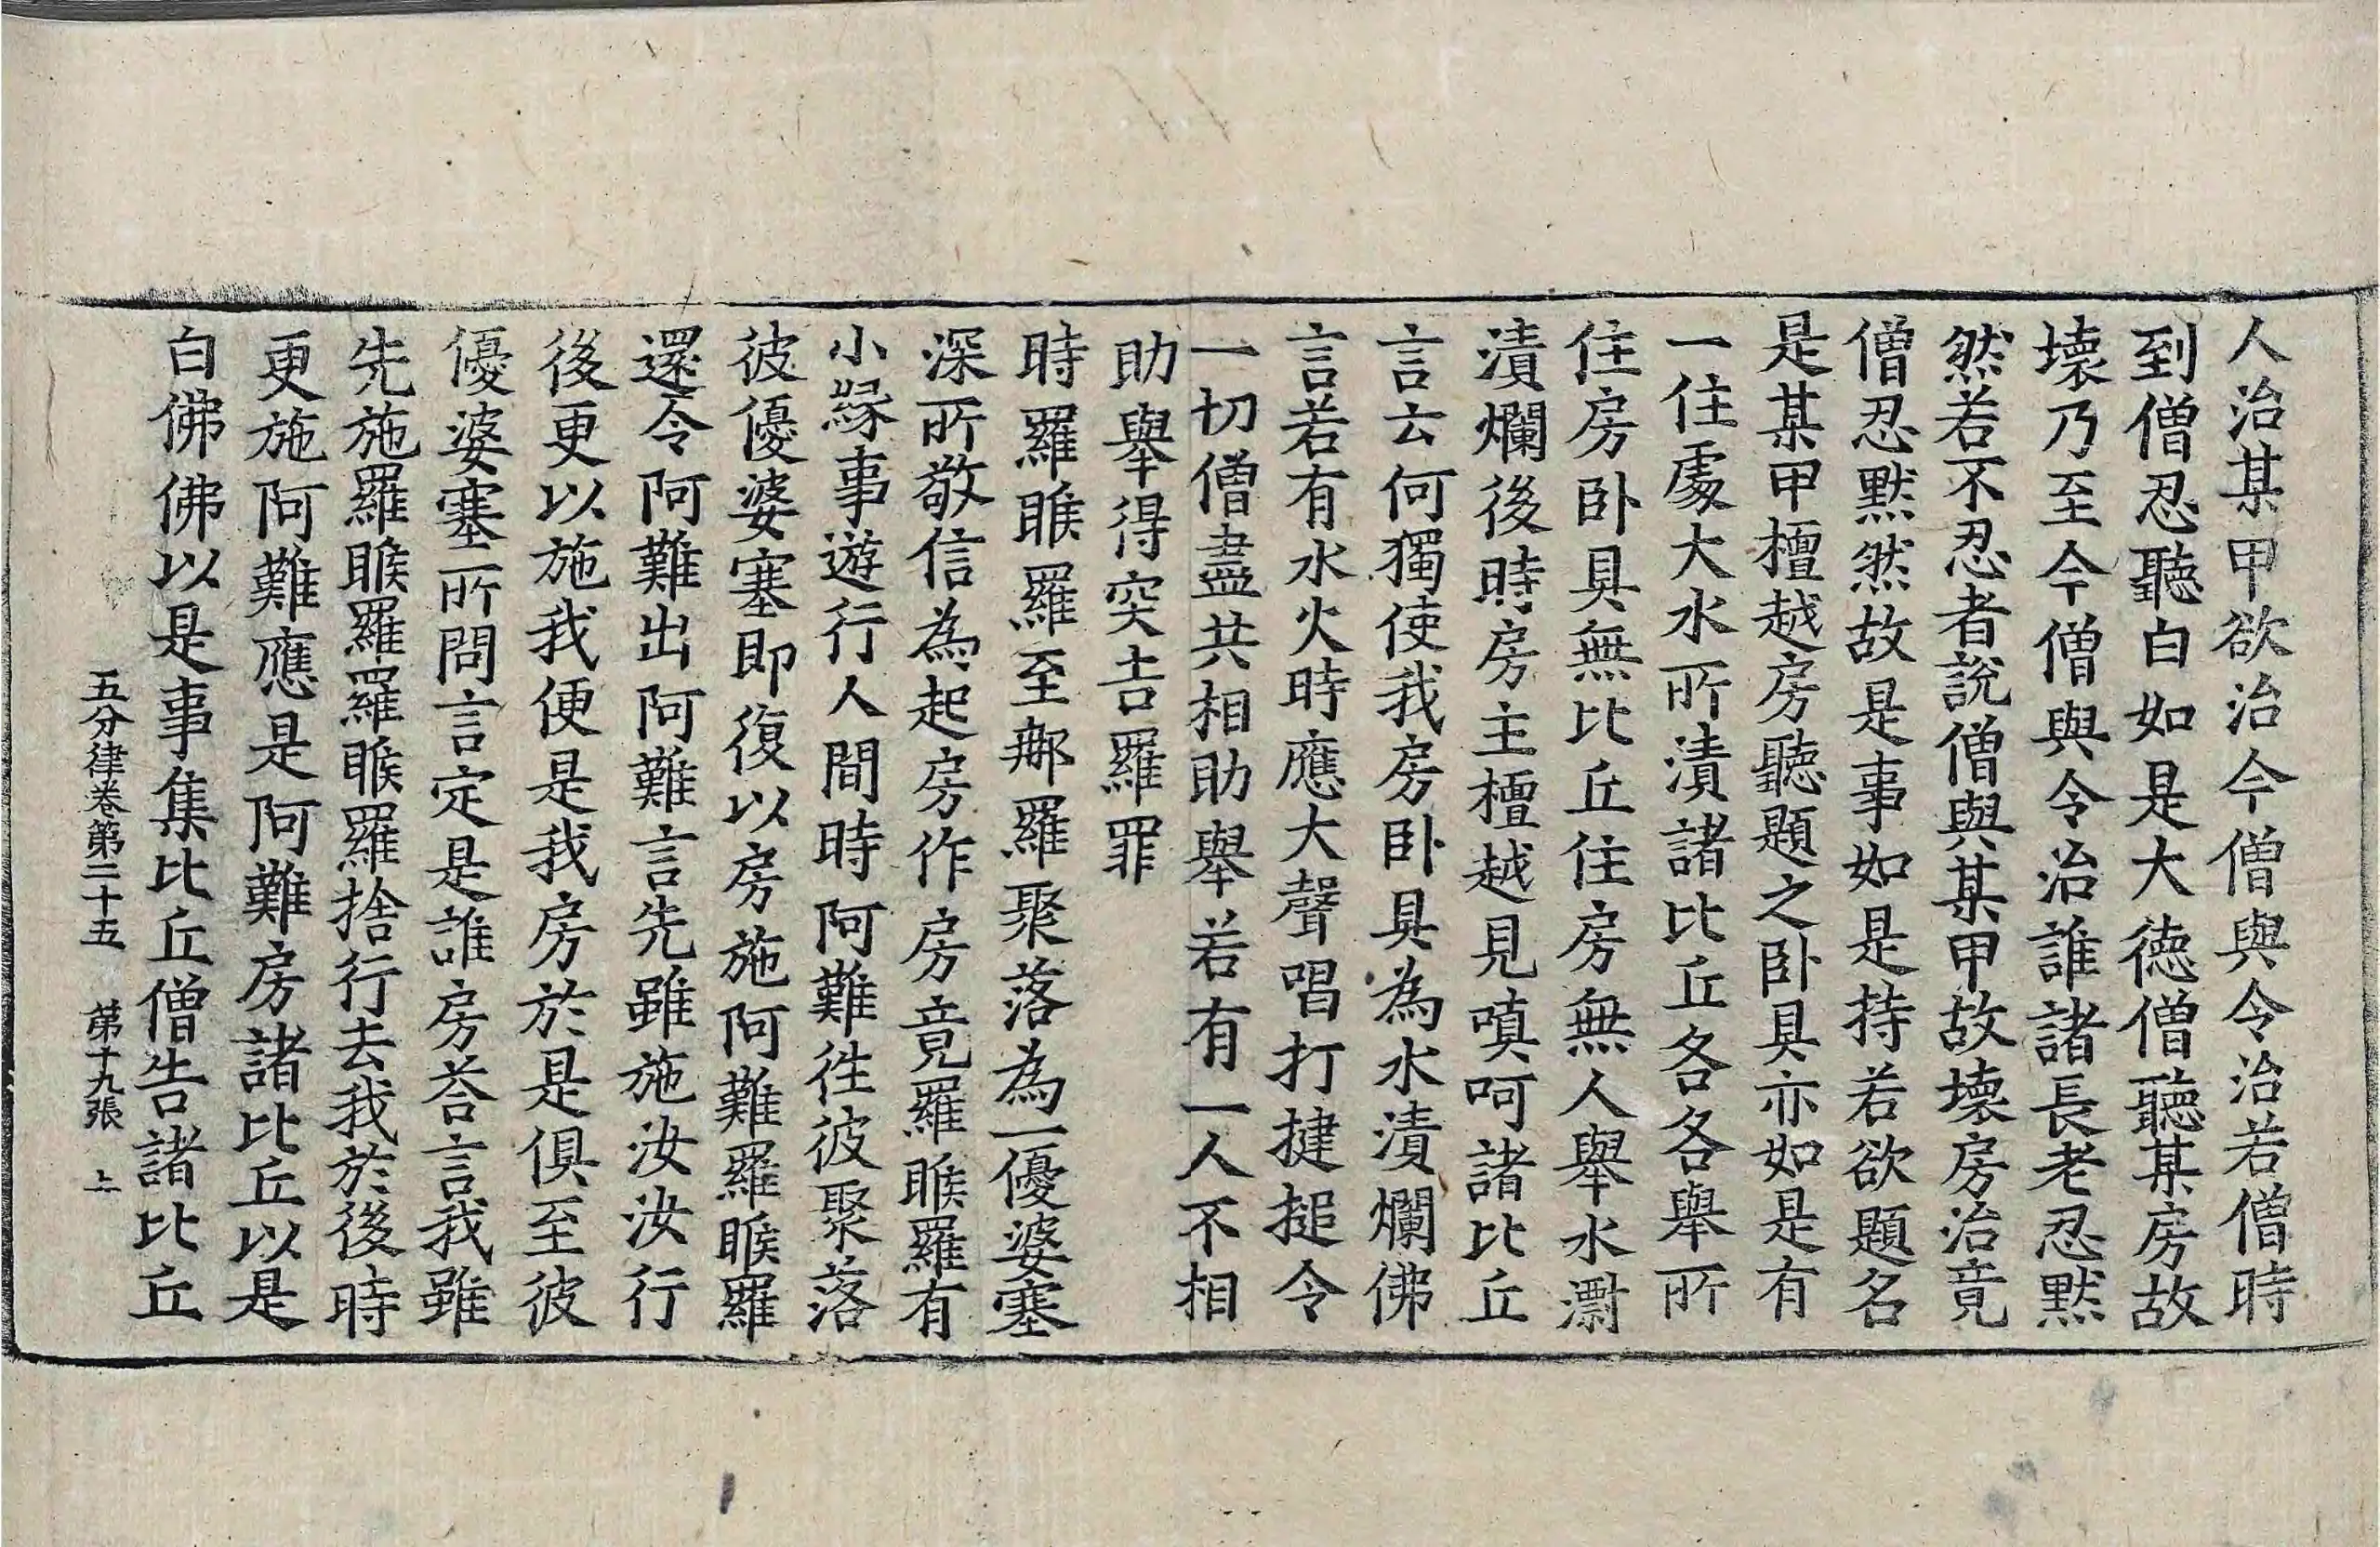 人治某甲欲治今僧與令治若僧時
到僧忍聽白如是大德僧聽某房故
壞乃至今僧與令治誰諸長老忍黙
然若不忍者說僧與某甲故壞房治竟
僧忍黙然故是事如是持若欲題名
是某甲檀越房聽題之卧具亦如是有
一住處大水所漬諸比丘各各舉所
住房卧具無比丘住房無人舉水澍
漬爛後時房主檀越見嗔呵諸比丘
言云何獨使我房卧具為水漬爛佛
言若有水火時應大聲唱打揵搥令
一切僧盡共相助舉若有一人不相
助舉得突吉羅罪
時羅睺羅至郍羅聚落為一優婆塞
深所敬信為起房作房竟羅睺羅有
小緣事遊行人間時阿難徃彼聚落
彼優婆塞即復以房施阿難羅睺羅
還令阿難出阿難言先雖施汝汝行
後更以施我便是我房於是俱至彼
優婆塞所問言定是誰房荅言我雖
先施羅睺羅羅睺羅捨行去我於後時
更施阿難應是阿難房諸比丘以是
白佛佛以是事集比丘僧告諸比丘
五分律卷第二十五 第十九張 上